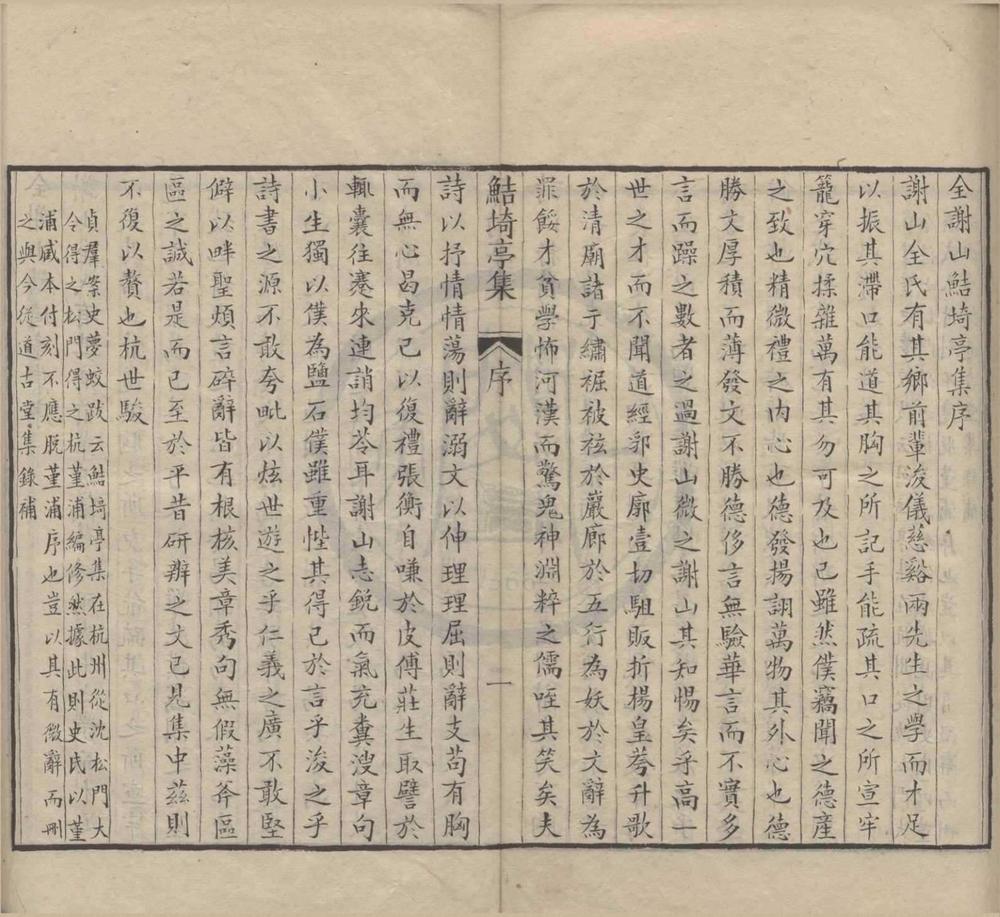 全謝山鮚埼亭集序
謝山全氏有其鄉前輩浚儀慈谿兩先生之學而才足
以振其滯口能道其胸之所記手能疏其口之所宣牢
籠穿穴揉雜萬有其勿可及也已雖然僕竊聞之德產
之致也精微禮之内心也德發揚詡萬物其外心也德
勝文厚積而薄發文不勝德侈言無驗華言而不實多
言而躁之數者之過謝山微之謝山其知惕矣乎高一
世之才而不聞道經郛史廓壹切駔販折楊皇荂升歌
於清廟諸于繡裾被袨於巖廊於五行為妖於文辭為
罪餒才貧學怖河漢而驚鬼神淵粹之儒咥其笑矣夫
鮚埼亭集 序 二
詩以抒情情蕩則辭溺文以伸理理屈則辭支苟有胸
而無心曷克己以復禮張衡自嗛於皮傅莊生取譬於
輒囊往蹇來連誚均苓耳謝山志銳而氣充糞溲章句
小生獨以僕為鹽石僕雖重悂其得已於言乎浚之乎
詩書之源不敢夸毗以炫世遊之乎仁義之廣不敢堅
僻以畔聖煩言碎辭皆有根核美章秀句無假藻斧區
區之誠若是而已至於平昔研辨之文已見集中茲則
不復以贅也杭世駿
貞羣案史夢蛟跋云鮚埼亭集在杭州從沈松門大
令得之松門得之杭堇浦編修然據此則史氏以堇
浦威本付刻不應脱堇浦序也豈以其有微辭而刪
之與今從道古堂集錄補